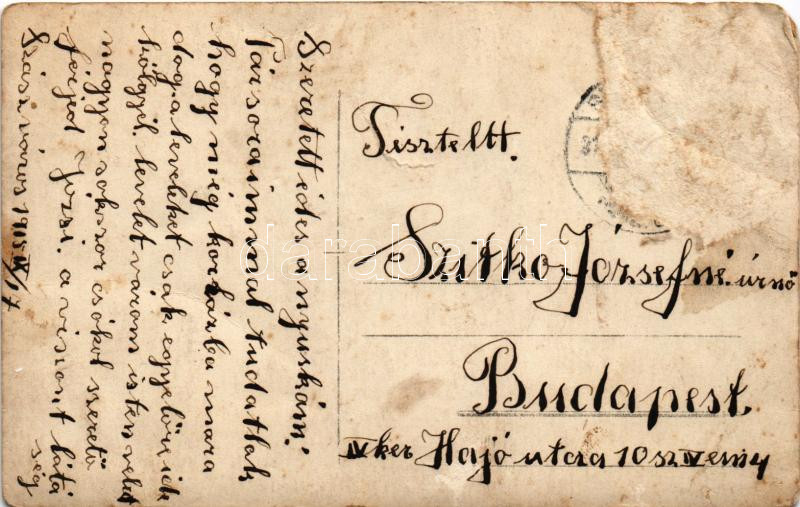 Szeretett édes anyuskám!
Pár soraimmal tudatlak
hogy még korházba mara
dog a leveliket csak egyelőre ide
küldjél. levelet várom isten veled
nagyon sokszor csókol szerető
férjed Józsi. a viszont látá
ság
Szász város 1915 IX/17
Tiszteltt.
Szitko Józsefné. úrnő
Budapest.
IV ker Hajó utcza 10 sz IV em 4
darabanth